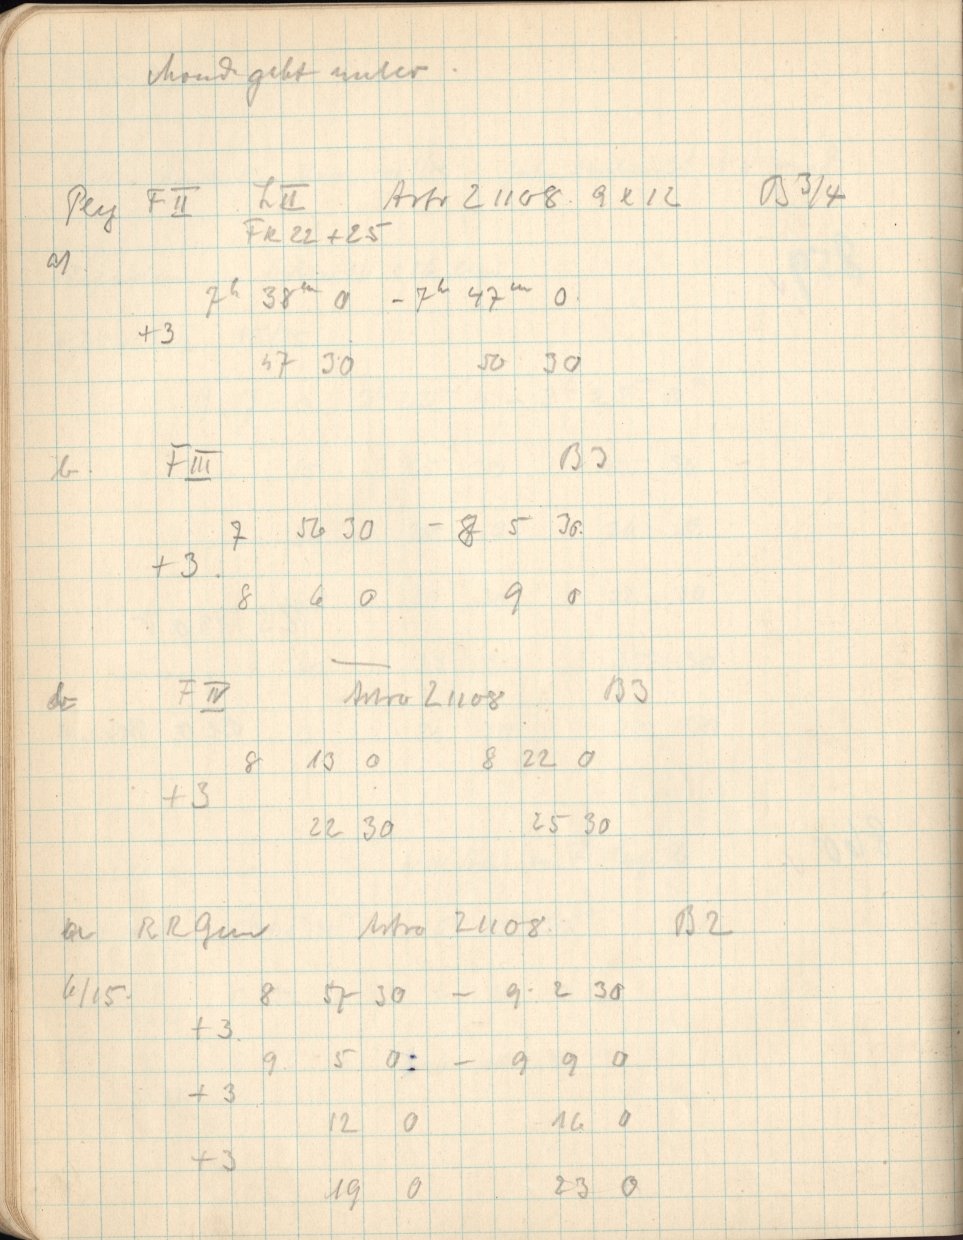 Mond geht unter.
Peg F II L II Astro Z 1108. 9 x 12 B 3/4
FK 22 + 25
a)
7h 38m 0 - 7h 47m 0.
+3
47 30 50 30
b. F III B3
7 56 30 - 8 5 30.
+3.
8 6 0 9 0
F IV Astro Z 1108 B3
8 13 0 8 22 0
+3
22 30 25 30
a RR Gem Astro Z 1108. B2
6/15. 8 57 30 - 9. 2 30
+3.
9 5 0: - 9 9 0
+3
12 0 16 0
+3
19 0 23 0